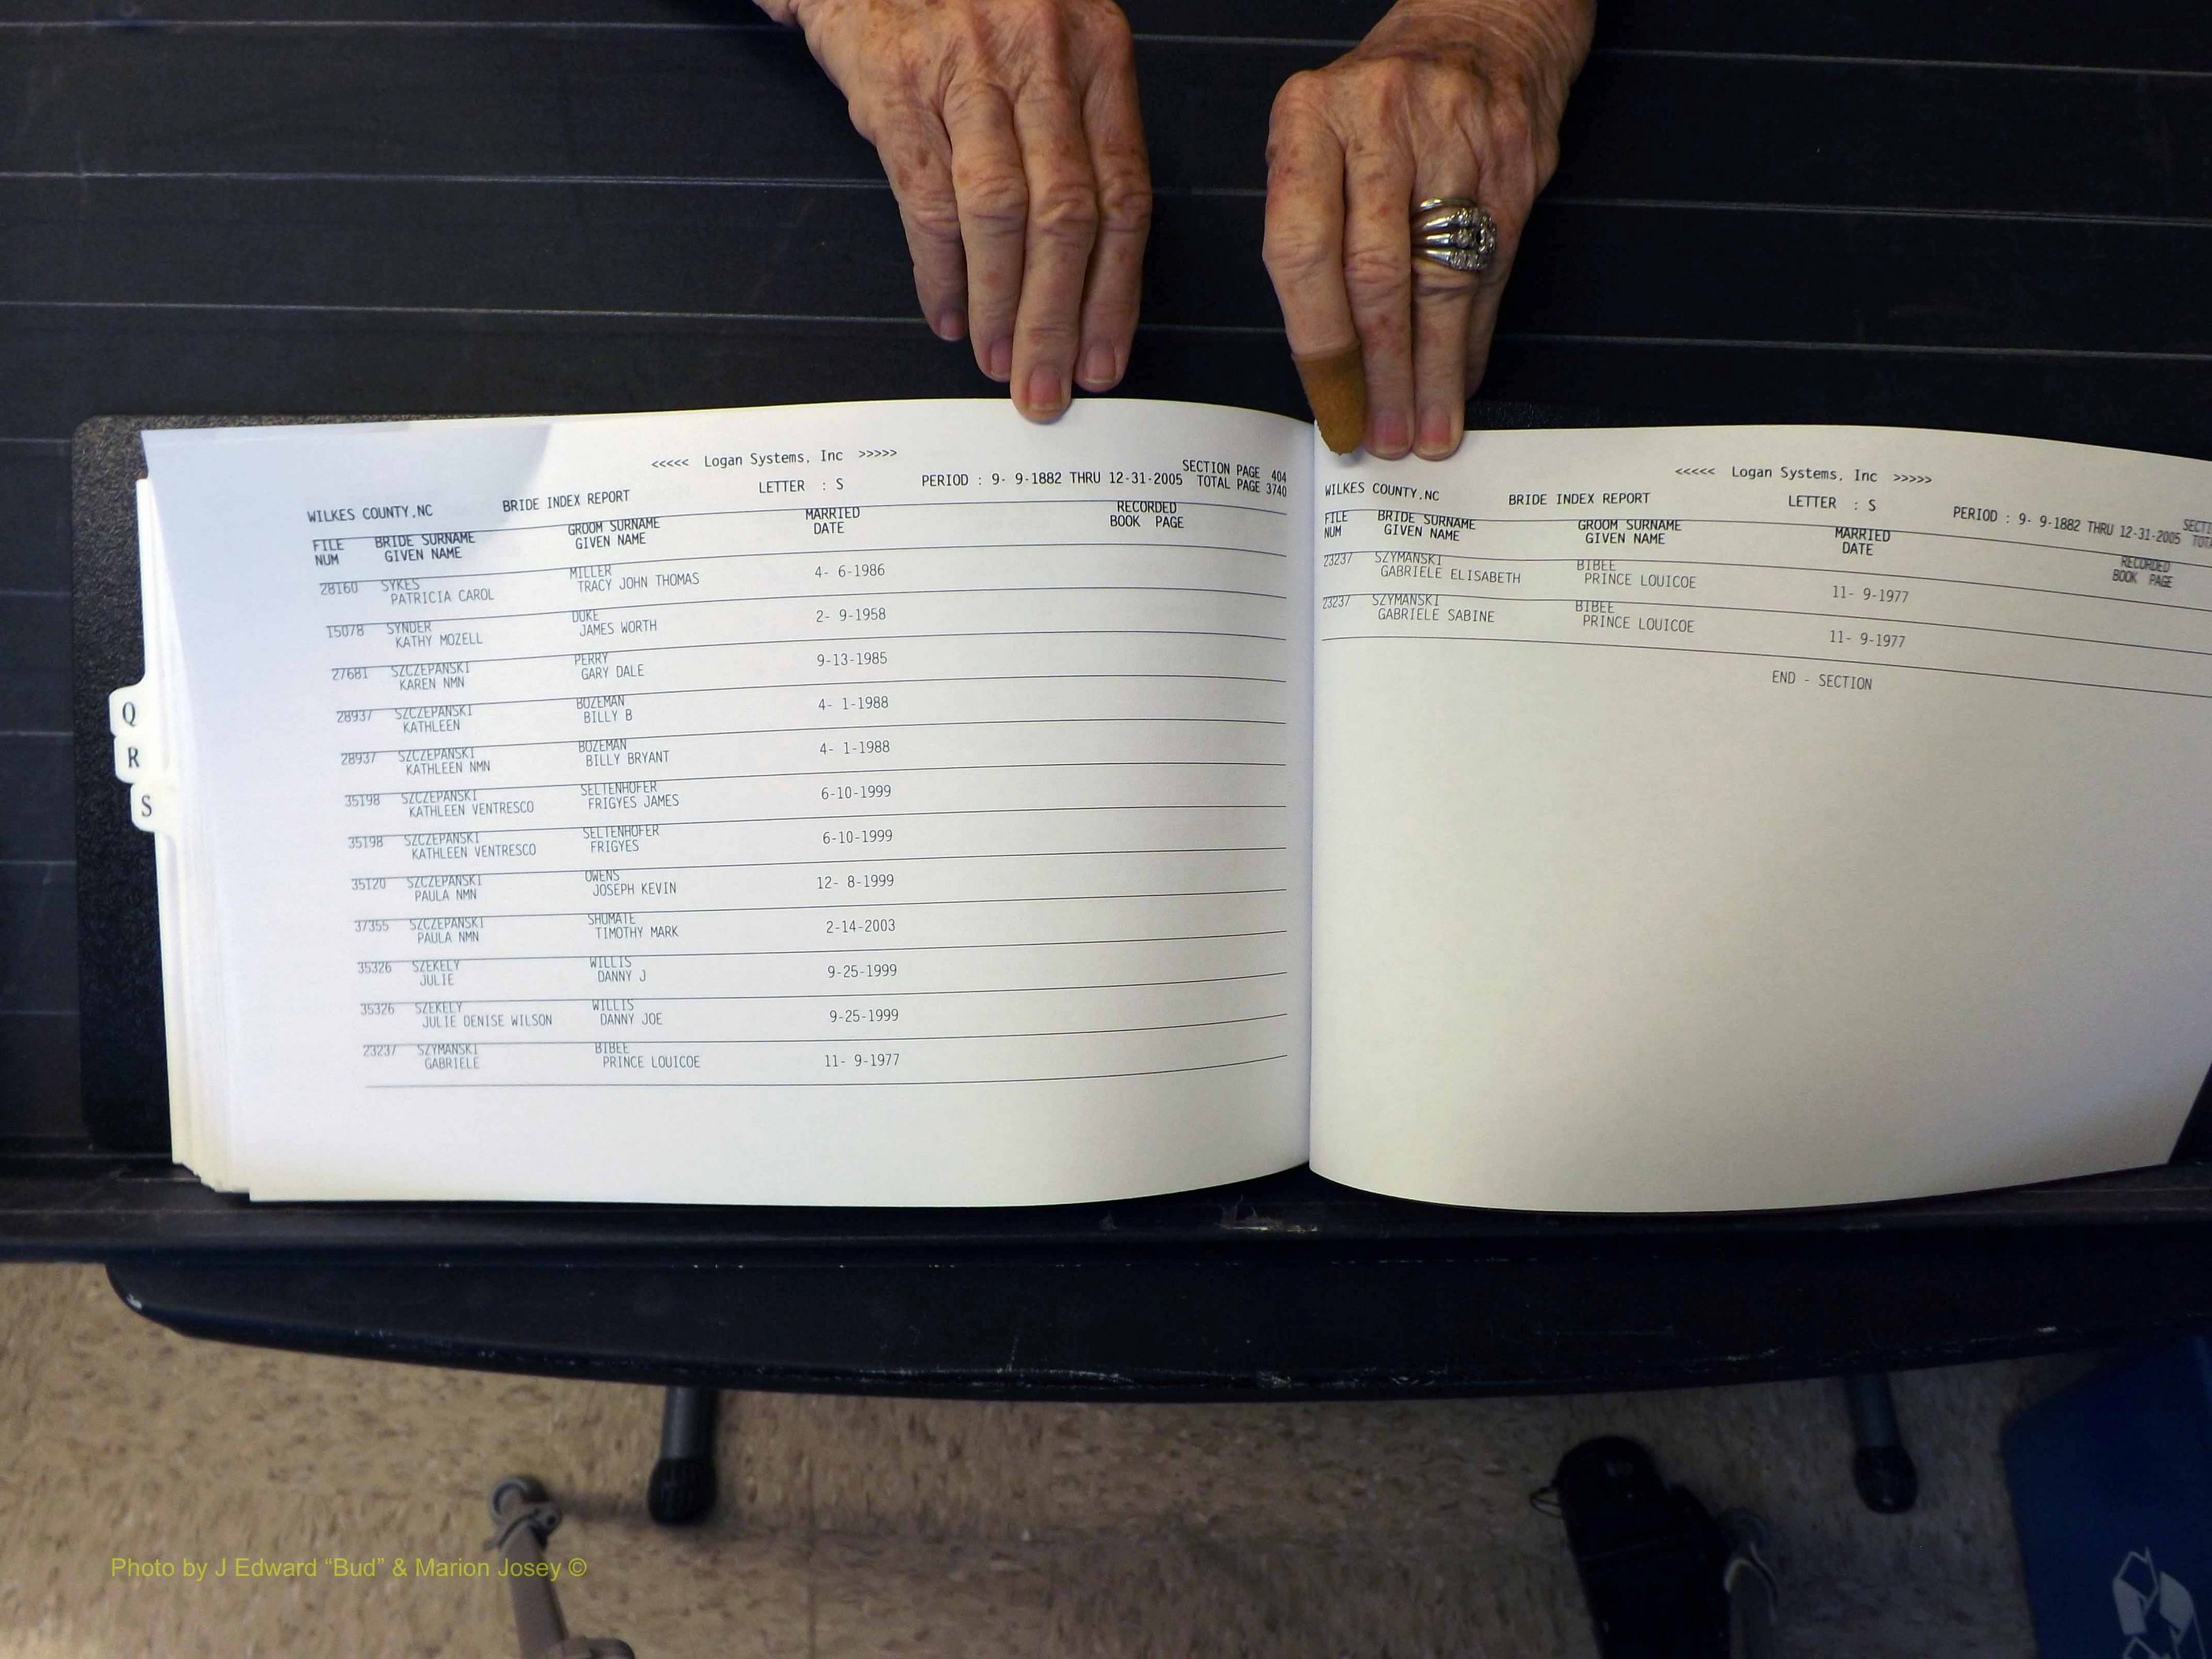 <<<<< Logan Systems, Inc >>>>>
SECTION PAGE 404
WILKES COUNTY,NC BRIDE INDEX REPORT LETTER : S PERIOD : 9- 9-1882 THRU 12-31-2005 TOTAL PAGE 3740
FILE BRIDE SURNAME GROOM SURNAME MARRIED RECORDED
NUM GIVEN NAME GIVEN NAME DATE BOOK PAGE
28160 SYKES MILLER 4- 6-1986
PATRICIA CAROL TRACY JOHN THOMAS
15078 SYNDER DUKE 2- 9-1958
KATHY MOZELL JAMES WORTH
27681 SZCZEPANSKI PERRY 9-13-1985
KAREN NMN GARY DALE
28937 SZCZEPANSKI BOZEMAN 4- 1-1988
KATHLEEN BILLY B
28937 SZCZEPANSKI BOZEMAN 4- 1-1988
KATHLEEN NMN BILLY BRYANT
35198 SZCZEPANSKI SELTENHOFER 6-10-1999
KATHLEEN VENTRESCO FRIGYES JAMES
35198 SZCZEPANSKI SELTENHOFER 6-10-1999
KATHLEEN VENTRESCO FRIGYES
35120 SZCZEPANSKI OWENS 12- 8-1999
PAULA NMN JOSEPH KEVIN
37355 SZCZEPANSKI SHUMATE 2-14-2003
PAULA NMN TIMOTHY MARK
35326 SZEKELY WILLIS 9-25-1999
JULIE DANNY J
35326 SZEKELY WILLIS 9-25-1999
JULIE DENISE WILSON DANNY JOE
23237 SZYMANSKI BIBEE 11- 9-1977
GABRIELE PRINCE LOUICOE
Q
R
S
<<<<< Logan Systems, Inc >>>>>
WILKES COUNTY,NC BRIDE INDEX REPORT LETTER : S PERIOD : 9- 9-1882 THRU 12-31-2005
FILE BRIDE SURNAME GROOM SURNAME MARRIED RECORDED
NUM GIVEN NAME GIVEN NAME DATE BOOK PAGE
23237 SZYMANSKI BIBEE 11- 9-1977
GABRIELE ELISABETH PRINCE LOUICOE
23237 SZYMANSKI BIBEE 11- 9-1977
GABRIELE SABINE PRINCE LOUICOE
END - SECTION
Photo by J Edward “Bud” & Marion Josey ©